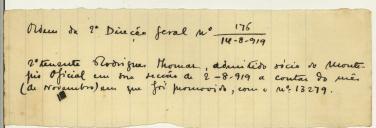 Ordem da 2ª Direção geral nº 176
14-8-919
2º tenente Rodrigues Thomas, admitido sócio do Monte
pio Oficial em sua secção de 2-8-919 a contar do mês
(de novembro) em que foi promovido, com o nº 13279.